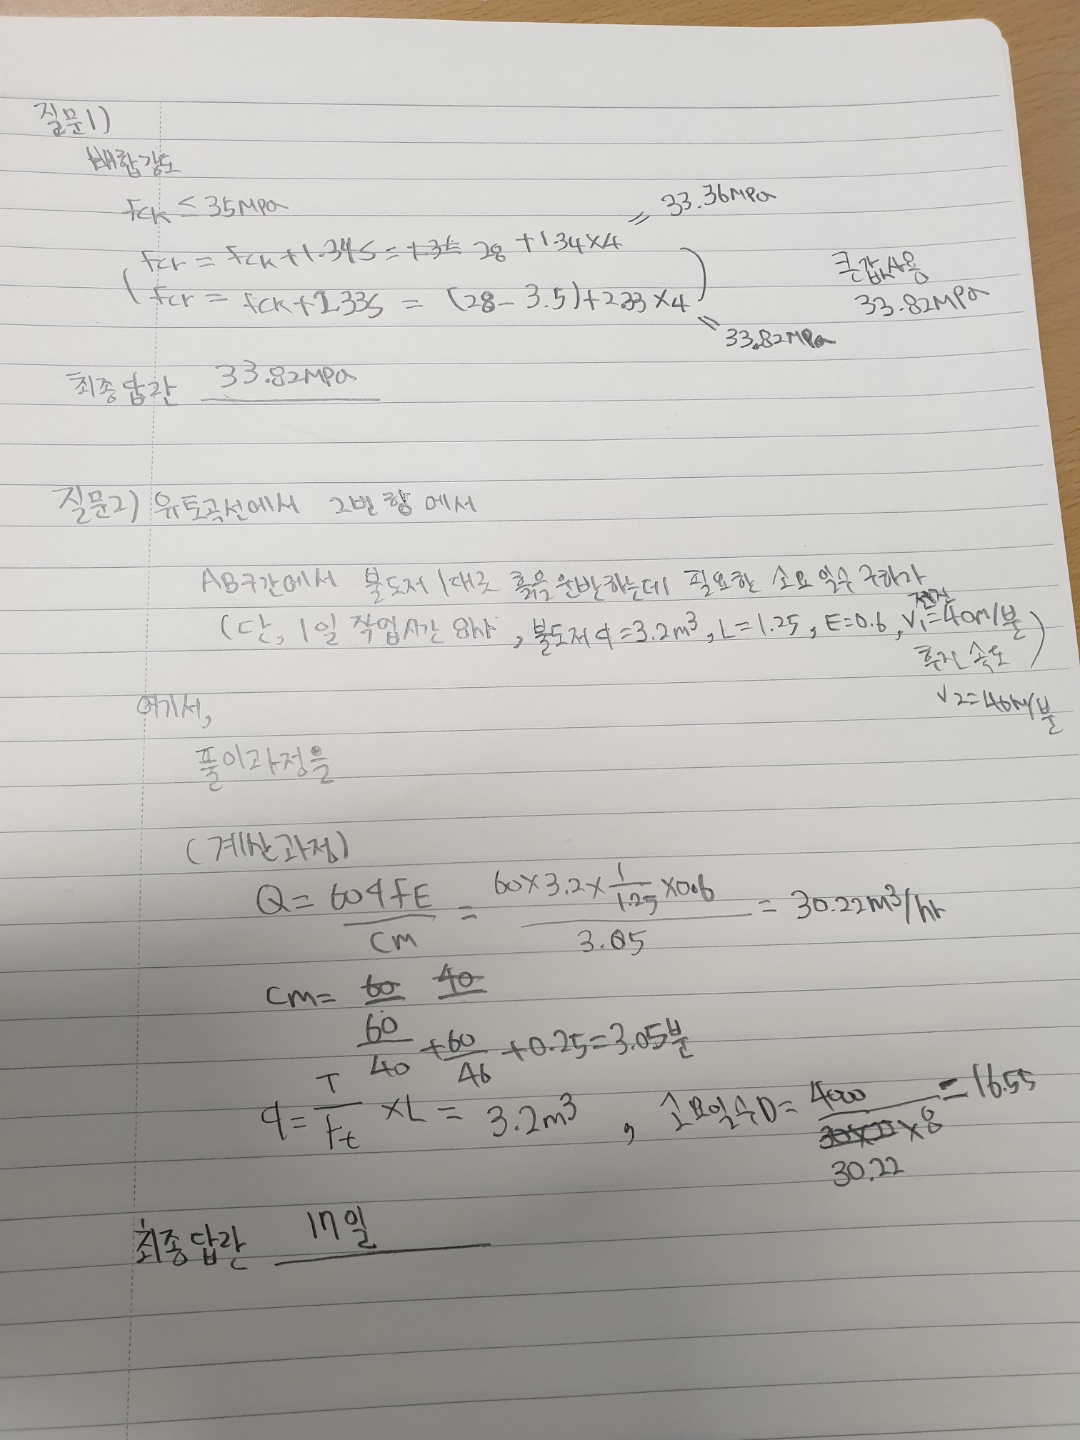 질문1)
배합강도
fck ≤ 35MPa
fcr = fck+1.34S = 28 +1.34×4 = 33.36MPa
fcr = fck+2.33S = (28-3.5)+2.33×4 = 33.82MPa
큰값사용
33.82MPa
최종답란 33.82MPa
질문2) 유토곡선에서 2번 항에서
AB구간에서 불도저 1대로 흙을 운반하는데 필요한 소요 일수 구하라
(단, 1일 작업시간 8h, 불도저 q=3.2m³, L=1.25, E=0.6, 전진 V1=40m/분
후진 속도
V2=46m/분)
여기서,
풀이과정을
(계산과정)
Q = 60qfE / cm = 60×3.2×1/1.25×0.6 / 3.05 = 30.22m³/hr
cm= 60 40
60/40 + 60/46 + 0.25 = 3.05분
q = T/rt × L = 3.2m³ , 소요일수D = 4000 / 30.22 ×8 = 16.55
최종답란 17일